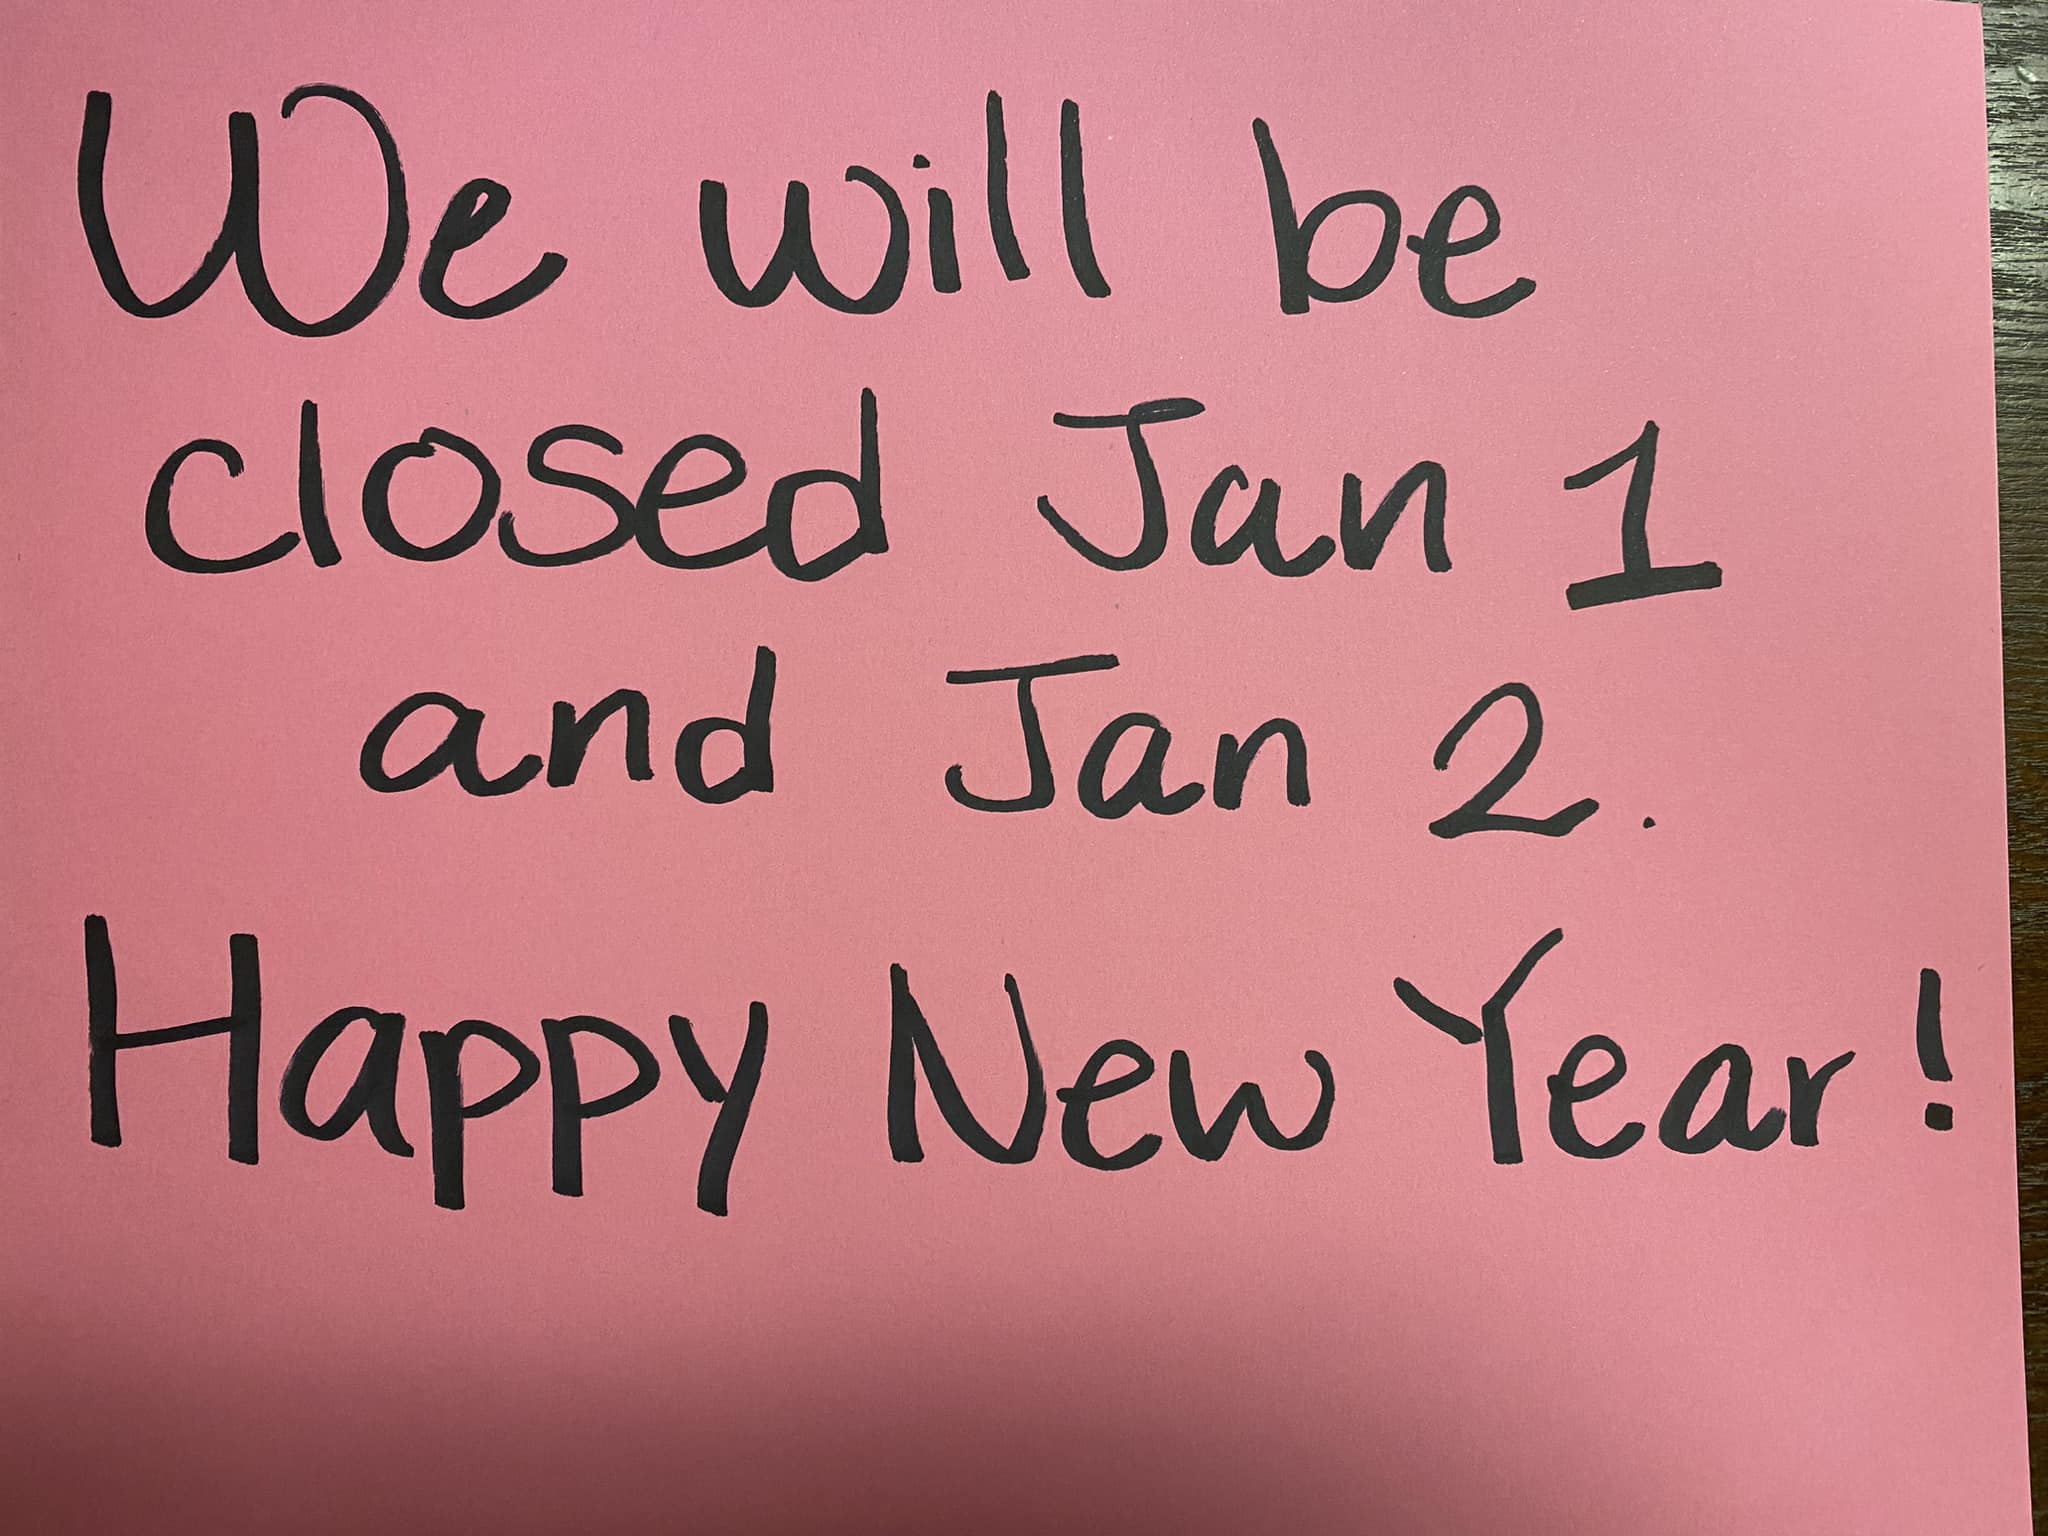 We will be
closed Jan 1
and Jan 2.
Happy New Year!